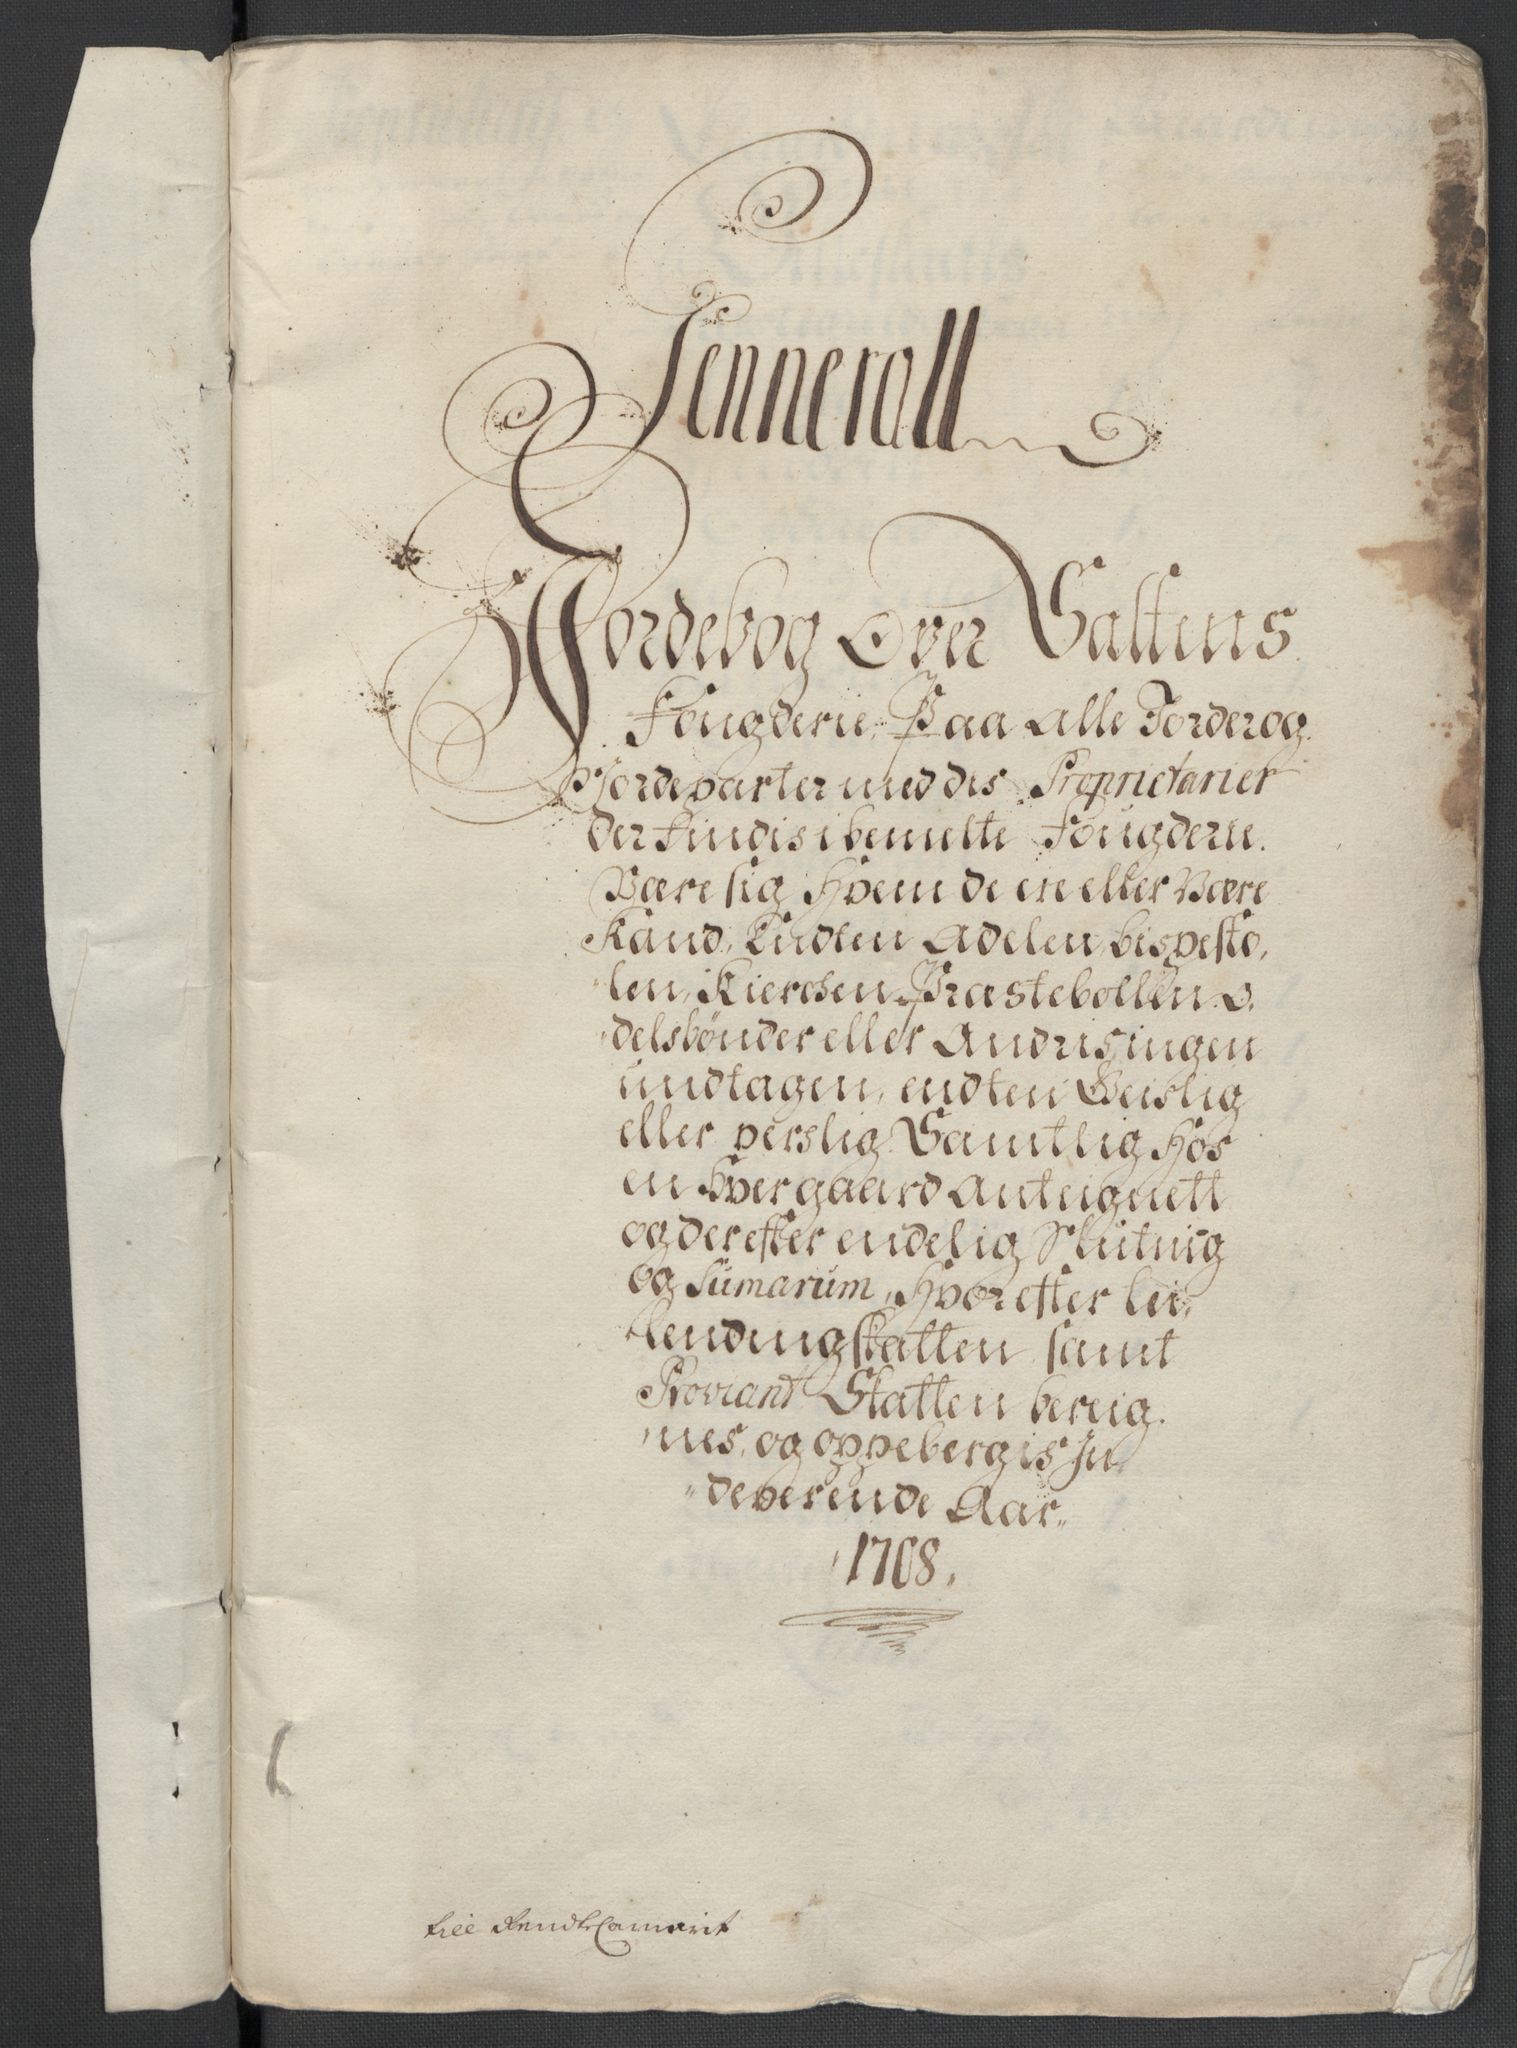 Jennerall
Jordebog Over Saltens
Fougderie, Paa alle Jorder og
Jordeparter med dis Proprietarier
der findis i bemelte Fougderie.
Være sig Hvem de ere eller Være
Kand, Endten Adelen, bispesto,
len, Kierchen Præstebollen O,
delsbønder eller Andris ingen
undtagen, endten Geislig
eller verslig Samtlig Hos
en Hver gaard Anteignett
og derefter endelig Slutnig
og Sumarum, Hvorefter lei,
lendingskatten samt
Proviant Skatten bereig,
nes, og oppebergis In
deverende Aar.
1708.
till RendteCamerit